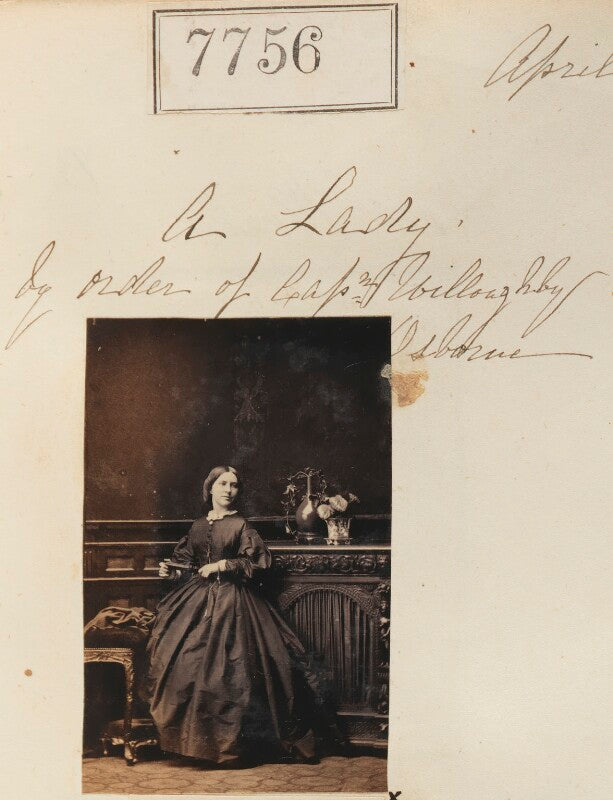 7756
April
A Lady.
by order of Capⁿ Willoughby
Osborne
x